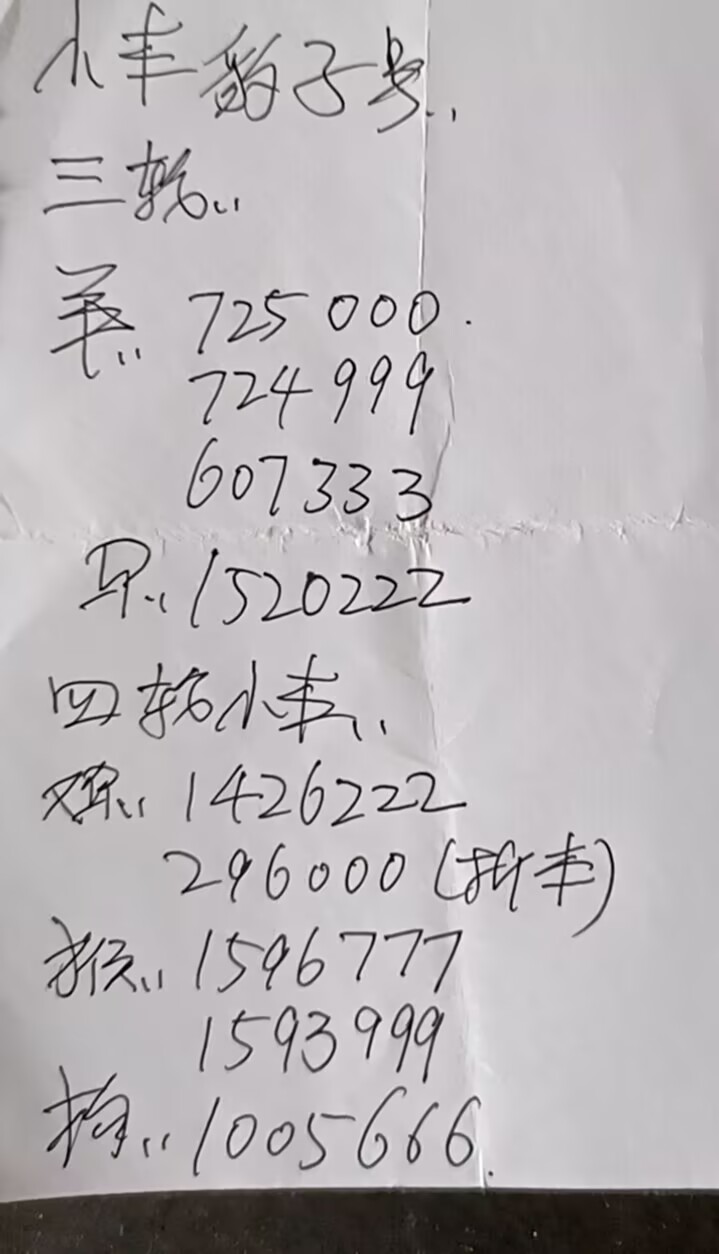 小丰豹子号..
三轮..
羊.. 725000.
724999
607333
早.. 1520222
四轮小丰..
鸡.. 1426222
296000 (折丰)
猴.. 1596777
1593999
狗.. 1005666.